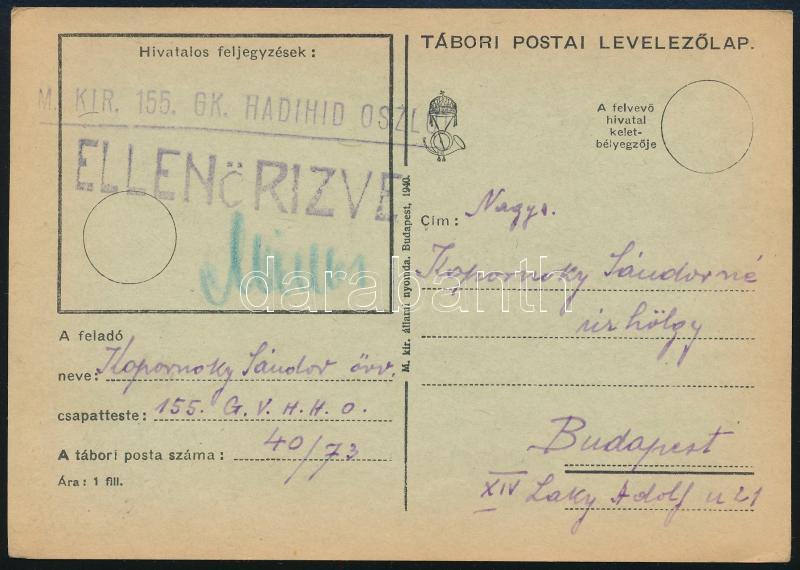 Hivatalos feljegyzések :
M. KIR. 155. GK. HADIHID OSZLOP
ELLENÖRIZVE
A feladó
neve: Kapornoky Sándor őrv.
csapatteste: 155. G. V. H. H. O.
A tábori posta száma : 40/73
Ára: 1 fill.
M. kir. állami nyomda. Budapest, 1940.
TÁBORI POSTAI LEVELEZŐLAP.
A felvevő
hivatal
kelet-
bélyegzője
Cím : Nagys.
Kapornoky Sándorné
úrhölgy
Budapest
XIV Laky Adolf u 21
darabanth